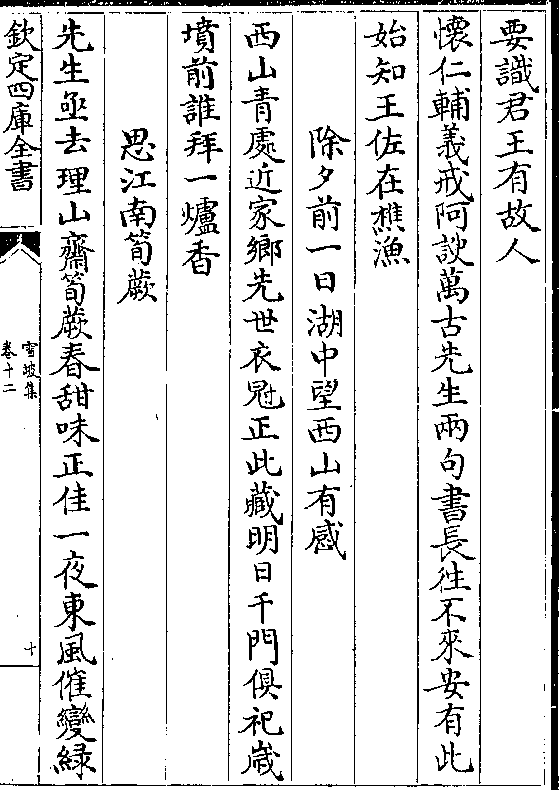 要識君王有故人
懷仁輔義戒阿諛萬古先生兩句書長往不來安有此
始知王佐在樵漁
除夕前一日湖中望西山有感
西山青處近家鄉先世衣冠正此藏明日千門俱祀歲
墳前誰拜一爐香
思江南筍蕨
先生亟去理山齋筍蕨春甜味正佳一夜東風催變緑
欽定四庫全書
雪坡集
卷十二
十